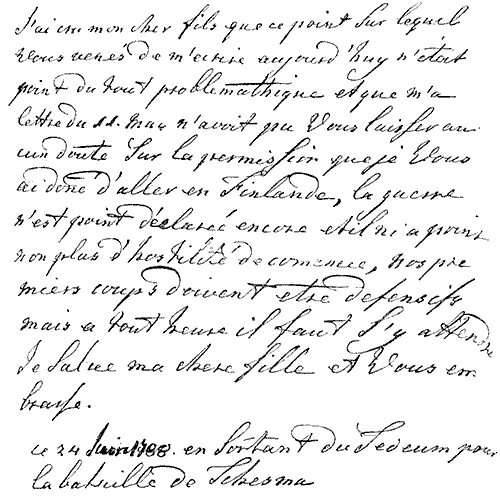 J'ai cru mon cher fils que ce point sur lequel
vous venés de m'ecrire aujourd'huy n'était
point du tout problemathique et que m'a
lettre du 11. may n'avoit pu vous laisser au
cun doute sur la permission que je vous
ai doné d'aller en Finlande, la guerre
n'est point déclareé encore et il ni a point
non plus d'hostilité de comencé, nos pre
miers coups doivent etre defensifs
mais a tout heure il faut s'y attendre
Je salue ma chere fille et vous em
brasse.
ce 24 Juin 1788. en sortant du Tedeum pour
la bataille de Tchesma